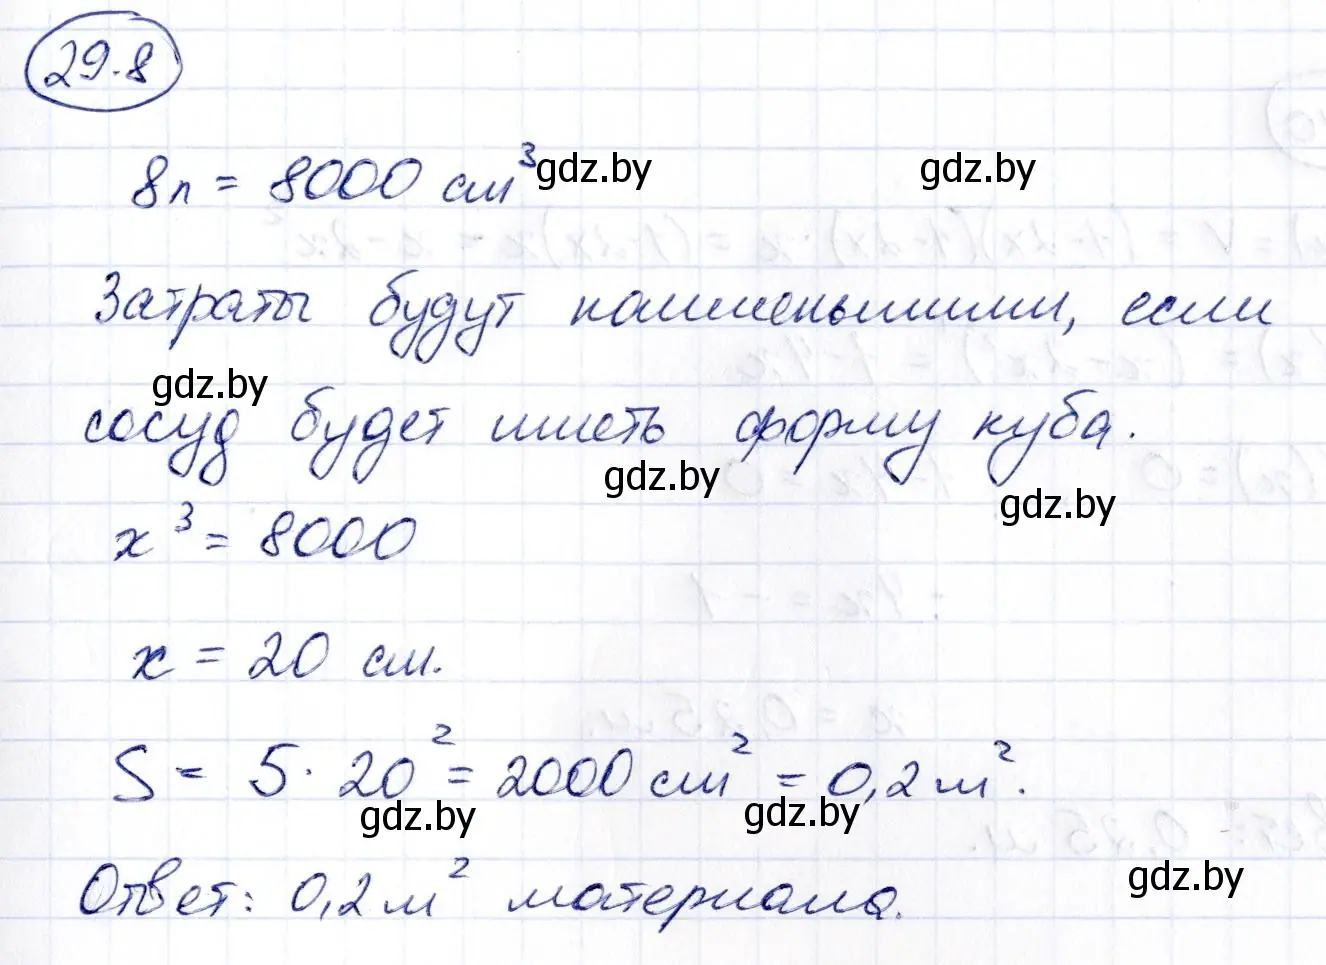 29.8
8л = 8000 см³ gdz.by gdz.by
Затраты будут наименьшими, если
gdz.by
сосуд будет иметь форму куба.
gdz.by gdz.by
x³ = 8000
x = 20 см.
S = 5 · 20² = 2000 см² = 0,2 м².
gdz.by gdz.by
gdz.by
Ответ: 0,2 м² материала.